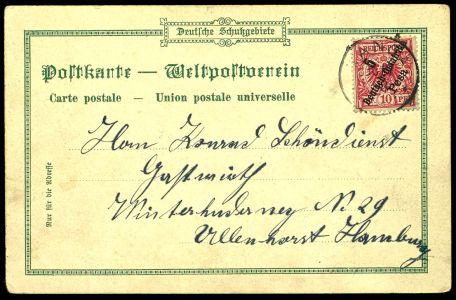 Deutsche Schutzgebiete
Postkarte — Weltpostverein
Carte postale — Union postale universelle
REICHSPOST
10 PF
Nur für die Adresse
Herrn Konrad Schöndienst
Gastwirth
Winterhuderweg N. 29
Uhlenhorst Hamburg